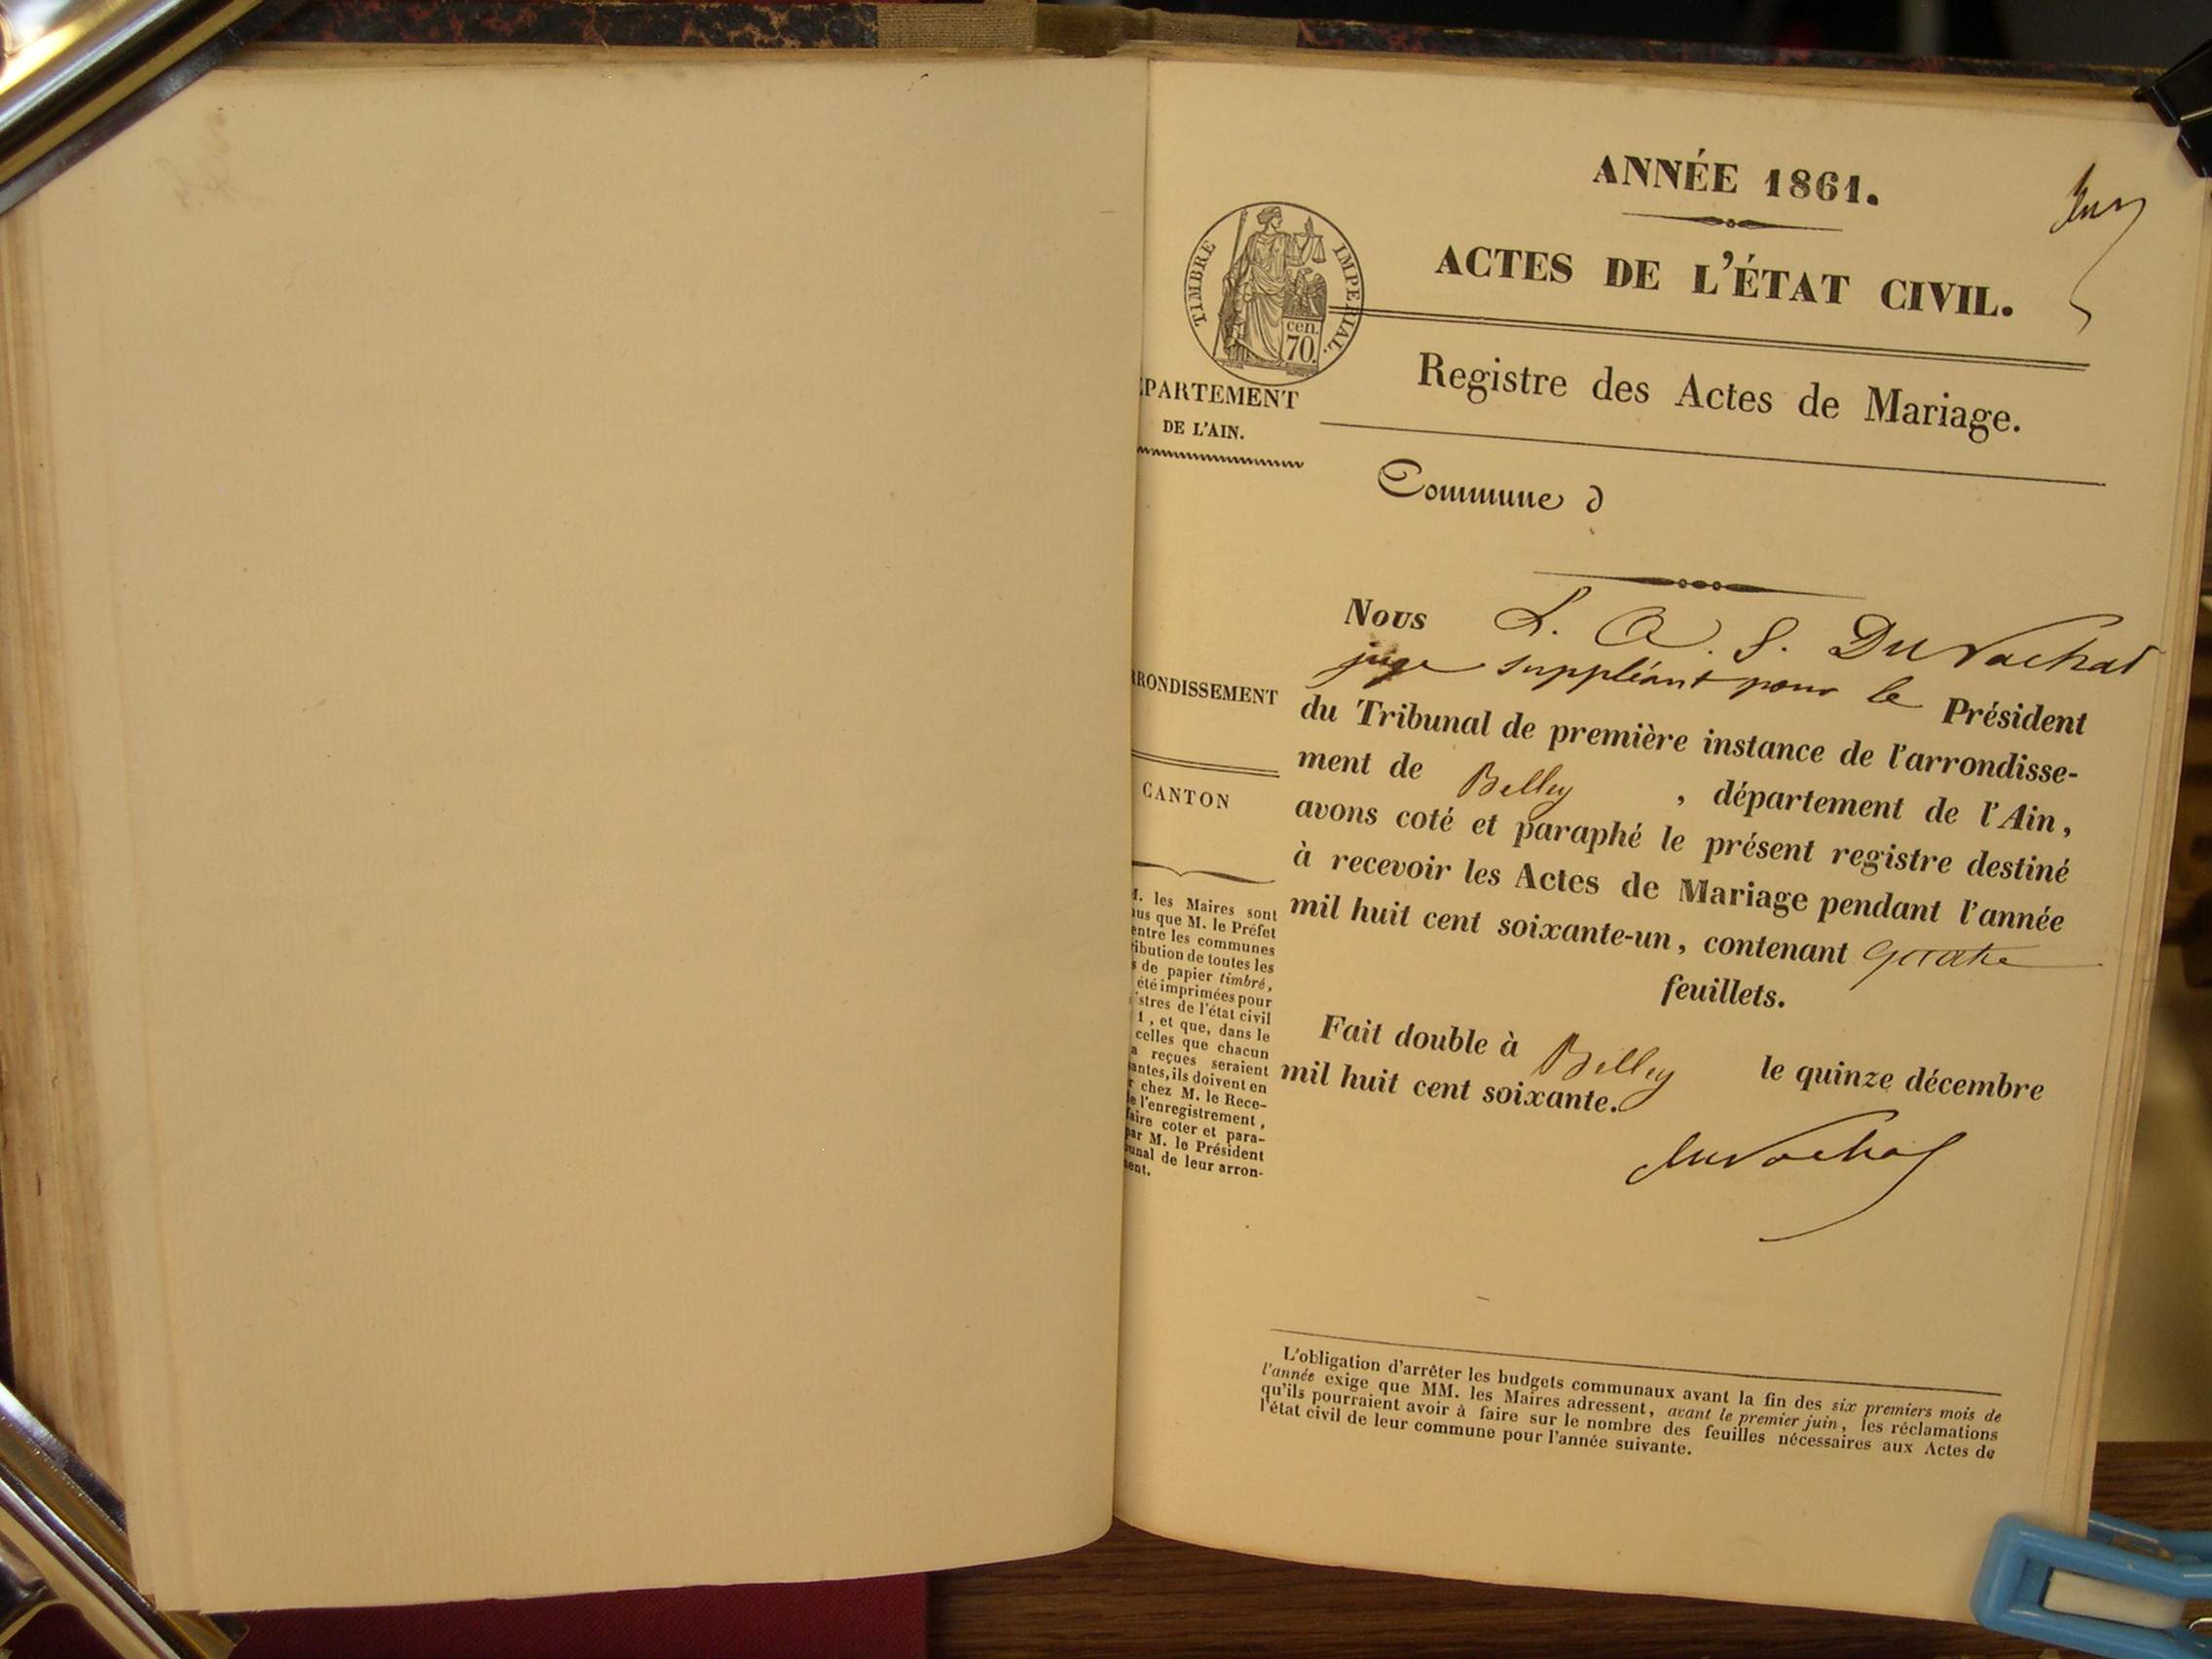 ANNÉE 1861.
ACTES DE L'ÉTAT CIVIL.
TIMBRE IMPERIAL.
cen.
70.
Registre des Actes de Mariage.
PARTEMENT
DE L'AIN.
Commune d
Nous L. A. S. DuVachat
juge suppléant pour le Président
du Tribunal de première instance de l'arrondisse-
ment de Belley , département de l'Ain,
avons coté et paraphé le présent registre destiné
à recevoir les Actes de Mariage pendant l'année
mil huit cent soixante-un, contenant quatre
feuillets.
Fait double à Belley le quinze décembre
mil huit cent soixante.
duVachat
RRONDISSEMENT
CANTON
M. les Maires sont
us que M. le Préfet
entre les communes
ribution de toutes les
s de papier timbré,
été imprimées pour
stres de l'état civil
1, et que, dans le
celles que chacun
a reçues seraient
antes, ils doivent en
r chez M. le Rece-
e l'enregistrement,
faire coter et para-
par M. le Président
unal de leur arron-
ent.
L'obligation d'arrêter les budgets communaux avant la fin des six premiers mois de
l'année exige que MM. les Maires adressent, avant le premier juin, les réclamations
qu'ils pourraient avoir à faire sur le nombre des feuilles nécessaires aux Actes de
l'état civil de leur commune pour l'année suivante.